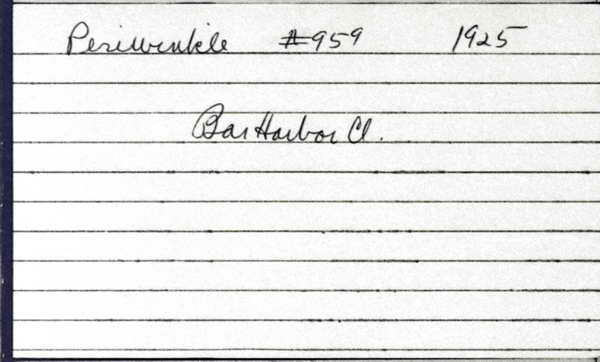 Periwinkle #959 1925
Bar Harbor Cl.